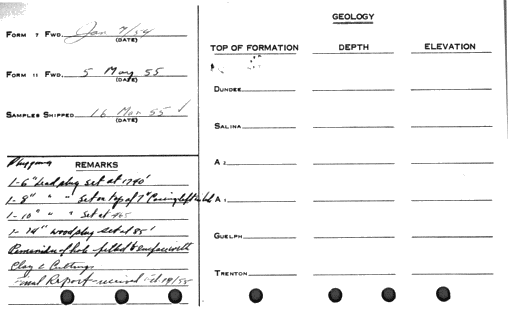 FORM 7 FWD. Jan 7/54
(DATE)
FORM 11 FWD. 5 May 55
(DATE)
SAMPLES SHIPPED 16 Mar 55 ✓
(DATE)
Plugging
REMARKS
1-6" Lead plug set at 1740'
1-8" " " Set on top of 7" Casing left in hole
1-10" " " Set at 465
1-14" wood plug set at 85'
Remainder of hole filled to surface with
Clay & Cuttings
Final Report received 19/55
GEOLOGY
TOP OF FORMATION DEPTH ELEVATION
DUNDEE
SALINA
A 2
A 1
GUELPH
TRENTON